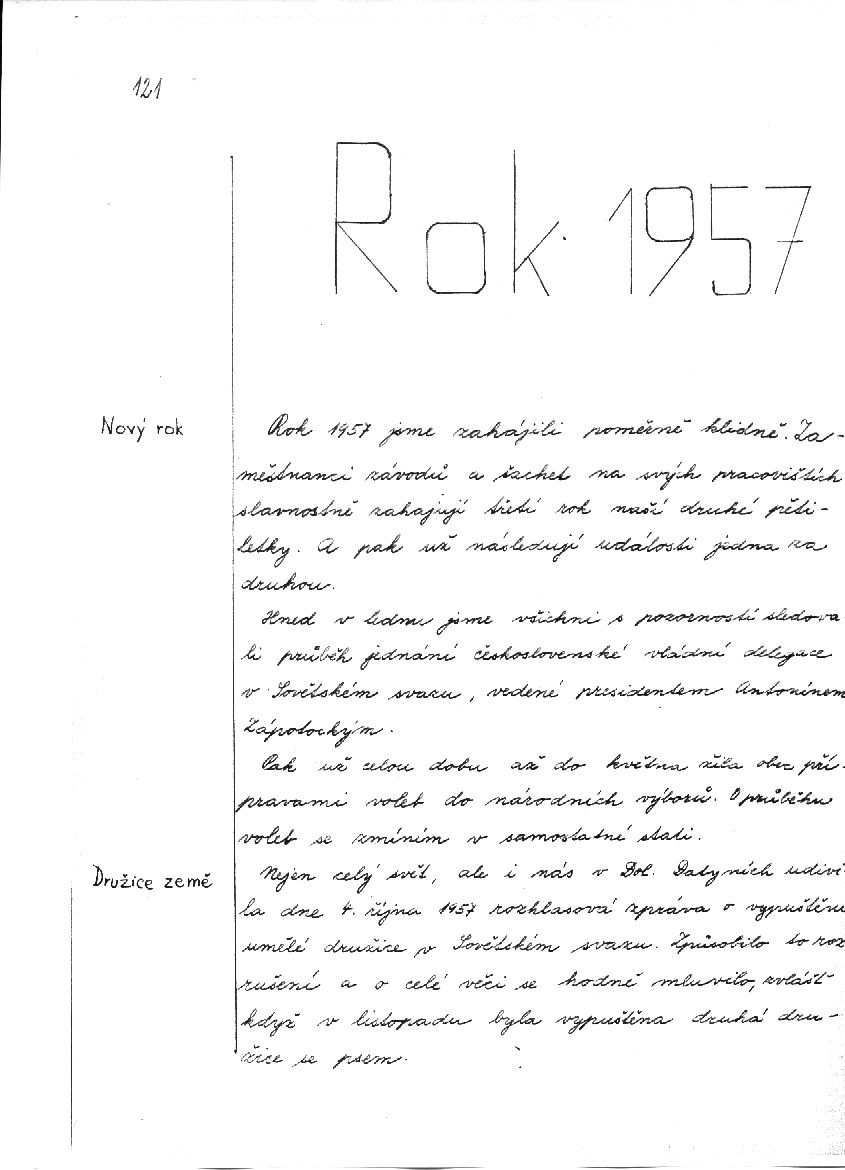 121
Rok 1957
Nový rok
Rok 1957 jsme zahájili poměrně klidně. Za-
městnanci závodů a šachet na svých pracovištích
slavnostně zahajují třetí rok naší druhé pěti-
letky. A pak už následují události jedna za
druhou.
Hned v lednu jsme všichni s pozorností sledova
li průběh jednání československé vládní delegace
v Sovětském svazu, vedené presidentem Antonínem
Zápotockým.
Pak už celou dobu až do května žila obec pří-
pravami voleb do národních výborů. O průběhu
voleb se zmíním v samostatné stati.
Družice země
Nejen celý svět, ale i nás v Dol. Datyních udivi-
la dne 4. října 1957 rozhlasová zpráva o vypuštění
umělé družice v Sovětském svazu. Způsobilo to roz
rušení a o celé věci se hodně mluvilo, zvlášť
když v listopadu byla vypuštěna druhá dru-
žice se psem.